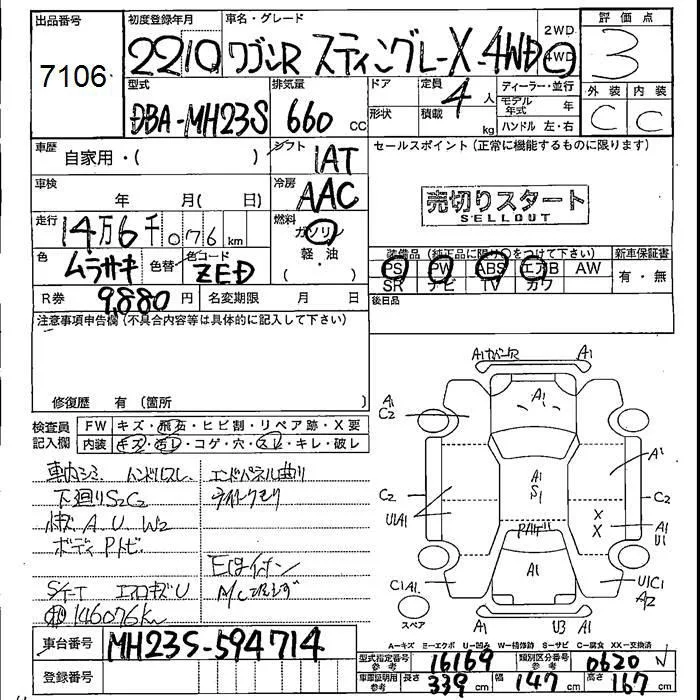 出品番号
7106
初度登録年月
22 10
車名・グレード
ワゴンR スティングレーX 4WD
2WD
4WD
評価点
3
型式
DBA-MH23S
排気量
660 CC
ドア
形状
定員 4 人
積載 kg
ディーラー・並行
モデル年式 年
ハンドル 左・右
外装 内装
C C
車歴
自家用・( )
シフト
IAT
セールスポイント(正常に機能するものに限ります)
車検
年 月( 日)
冷房
AAC
売切りスタート
SELLOUT
走行
14万6千076km
燃料
ガソリン
軽・油
色
ムラサキ
色替
色コード
ZED
装備品(純正品に限り○をつけて下さい)
新車保証書
PS PW ABS エアB AW
有・無
SR ナビ TV カワ
R券 9,880 円
名変期限 月 日
後日品
注意事項申告欄(不具合内容等は具体的に記入して下さい)
修復歴 有(箇所 )
検査員
記入欄
FW キズ・飛石・ヒビ割・リペア跡・X要
内装 キズ・汚レ・コゲ・穴・スレ・キレ・破レ
車内シミ ハンドルスレ
エンドパネル曲り
下廻りS2C2
ライトクモリ
小キズ A. U. W2
ボディPトビ
S/T-T エアロキズU
146076km
車台番号
MH23S-594714
登録番号
A1 カバーR A1
A1
C2
A1
A1
C2
U1A1
A1
S1
Pハゲ
X
X
C2
A1
U1
C1A1.
A1
U1C1
A2
スペア
A1 U3 A1
A-キズ E-エクボ U-凹み W-補修跡 S-サビ C-腐食 XX-交換済
型式指定番号
参考
16169
類別区分番号
参考
0620
車庫証明用
参考
長さ 339 cm
幅 147 cm
高さ 167 cm